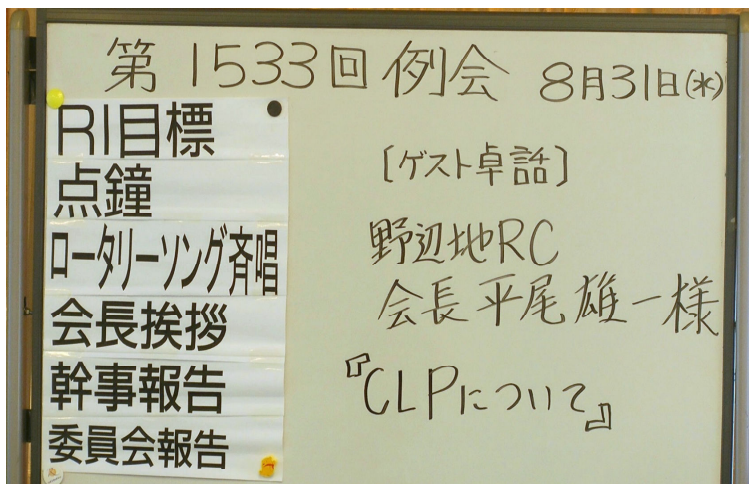 第1533回例会 8月31日(水)
RI目標
点鐘
ロータリーソング斉唱
会長挨拶
幹事報告
委員会報告
[ゲスト卓話]
野辺地RC
会長 平尾雄一様
『CLPについて』